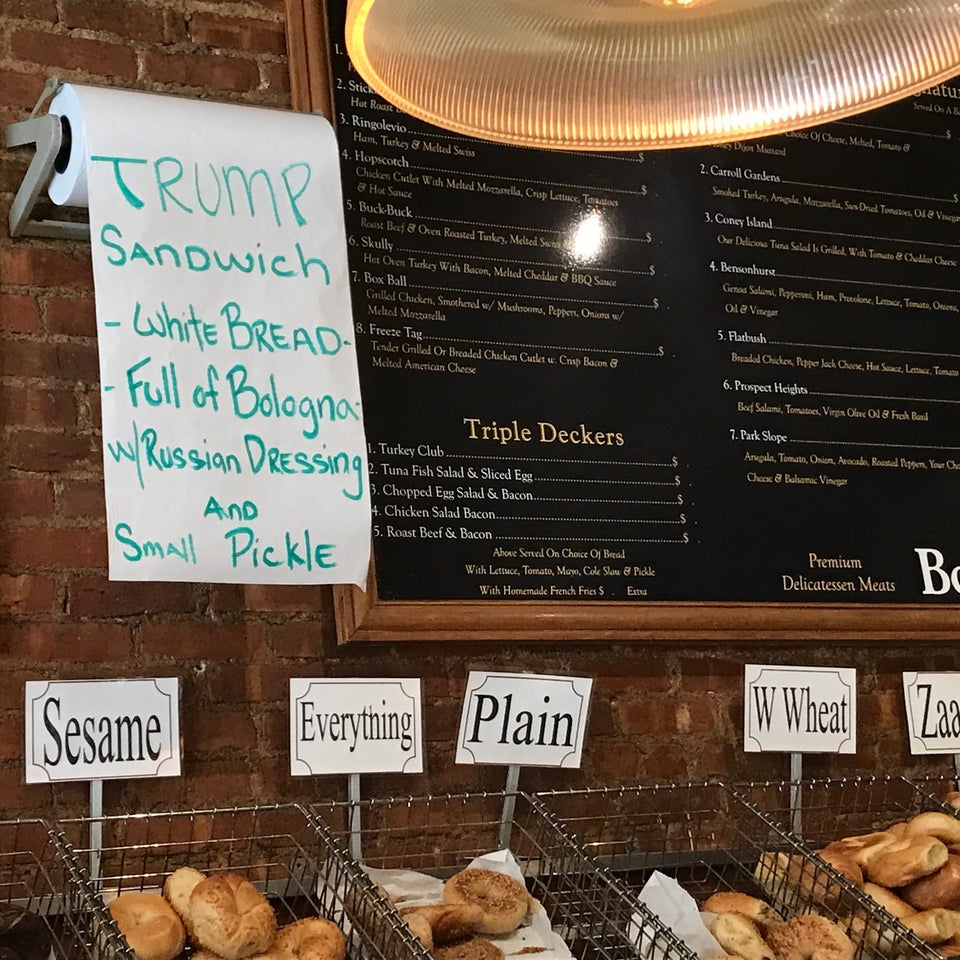 TRUMP
SANDWICH
- White BREAD-
- Full of Bologna-
w/Russian DRESSING
AND
Small Pickle
1.
2. Stick
Hot Roast
3. Ringolevio $
Ham, Turkey & Melted Swiss
4. Hopscotch $
Chicken Cutlet With Melted Mozzarella, Crisp Lettuce, Tomatoes
& Hot Sauce
5. Buck-Buck $
Roast Beef & Oven Roasted Turkey, Melted Swiss
6. Skully $
Hot Oven Turkey With Bacon, Melted Cheddar & BBQ Sauce
7. Box Ball $
Grilled Chicken, Smothered w/ Mushrooms, Peppers, Onions w/
Melted Mozzarella
8. Freeze Tag $
Tender Grilled Or Breaded Chicken Cutlet w. Crisp Bacon &
Melted American Cheese
Triple Deckers
1. Turkey Club $
2. Tuna Fish Salad & Sliced Egg $
3. Chopped Egg Salad & Bacon $
4. Chicken Salad Bacon $
5. Roast Beef & Bacon $
Above Served On Choice Of Bread
With Lettuce, Tomato, Mayo, Cole Slaw & Pickle
With Homemade French Fries $ . Extra
Served On A
$
Choice Of Cheese, Melted, Tomato &
Dijon Mustard
2. Carroll Gardens $
Smoked Turkey, Arugula, Mozzarella, Sun-Dried Tomatoes, Oil & Vinegar
3. Coney Island
Our Delicious Tuna Salad Is Grilled, With Tomato & Cheddar Cheese
4. Bensonhurst
Genoa Salami, Pepperoni, Ham, Provolone, Lettuce, Tomato, Onions,
Oil & Vinegar
5. Flatbush
Breaded Chicken, Pepper Jack Cheese, Hot Sauce, Lettuce, Tomato
6. Prospect Heights
Beef Salami, Tomatoes, Virgin Olive Oil & Fresh Basil
7. Park Slope
Arugula, Tomato, Onion, Avocado, Roasted Peppers, Your Cho
Cheese & Balsamic Vinegar
Premium
Delicatessen Meats
Bo
Sesame
Everything
Plain
W Wheat
Zaa